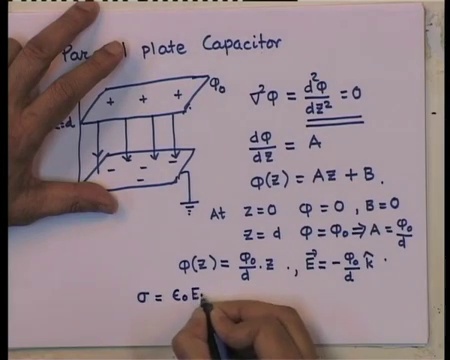 Par l plate Capacitor
φ₀
+ + +
:d
- - - -
∇²φ = d²φ/dz² = 0
dφ/dz = A
φ(z) = Az + B
At z=0 φ=0, B=0
z=d φ=φ₀ ⇒ A = φ₀/d
φ(z) = φ₀/d · z ., E⃗ = -φ₀/d k̂ .
σ = ϵ₀E